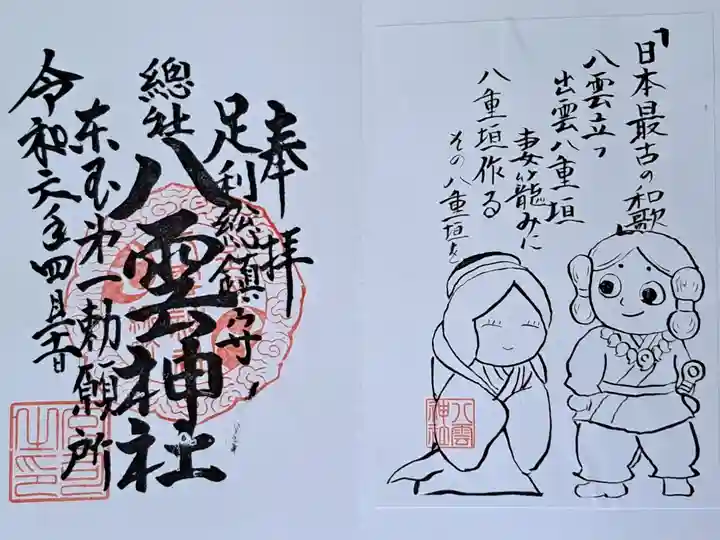 奉拝
足利總鎮守
總社
八雲神社
東国第一勅願所
令和元年四月
「日本最古の和歌」
八雲立つ
出雲八重垣
妻籠みに
八重垣作る
その八重垣を
八雲神社